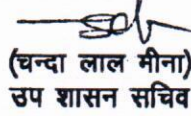 (चन्दा लाल मीना)
उप शासन सचिव